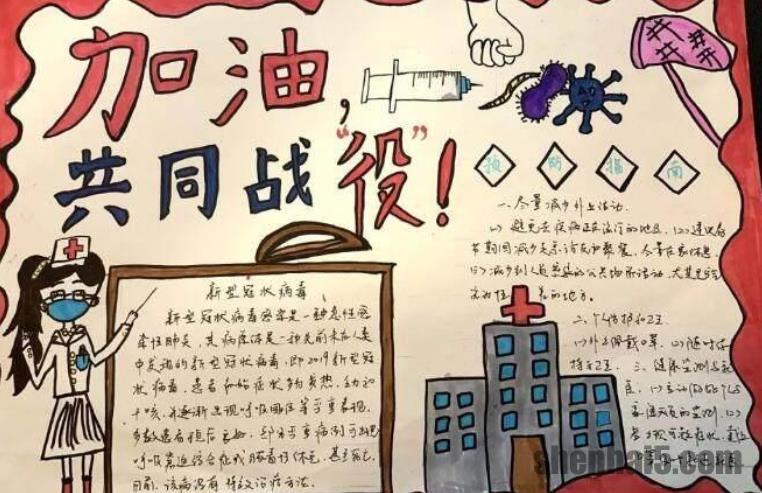 加油，
共同战“役”！
预防指南
一、尽量减少外出活动.
(1) 避免去疾病正在流行的地区. (2) 建议春
节期间减少走亲访友和聚餐，尽量在家休息.
(3) 减少到人员密集的公共场所活动，尤其是
的地方。
二、个人防护和卫
(1) 外出佩戴口罩. (2) 随时保
持手卫 三、健康监测与
(1) 主动
新型冠状病毒
新型冠状病毒感染是一种急性感
染性肺炎，其病原体是一种先前未在人类
中发现的新型冠状病毒，即2019新型冠
状病毒，患者初始症状多为发热、乏力和
干咳，并逐渐出现呼吸困难等严重表现.
多数患者预后良好，部分严重病例可出现
呼吸窘迫综合征或脓毒症休克，甚至死亡.
目前，该病没有特效治疗方法.
shenbai5.com